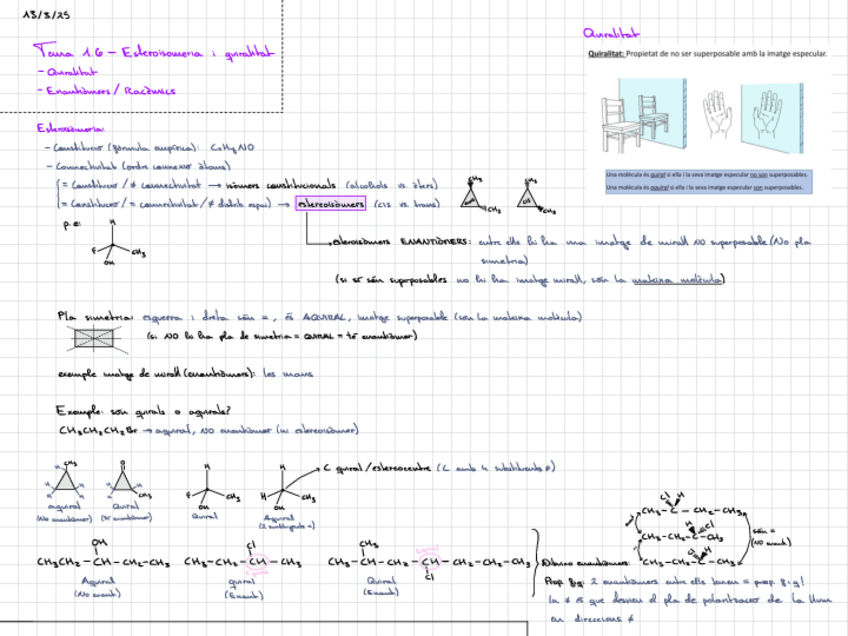 13/3/25
Tema 1.6 - Estereoisomeria i quiralitat
- Quiralitat
- Enantiòmers / Racèmics
Quiralitat
Quiralitat: Propietat de no ser superposable amb la imatge especular.
Una molècula és quiral si ella i la seva imatge especular no son superposables.
Una molècula és aquiral si ella i la seva imatge especular son superposables.
Estereoisomeria:
- Constitució (fórmula empírica):
- Connectivitat (ordre connexió àtoms)
= Constitució / ≠ connectivitat → isòmers constitucionals (alcohols vs. èters)
= Constitució / = connectivitat / ≠ distrib espai) → estereoisòmers (cis vs. trans)
CH₃
CH₃
CH₂
CH₃
p.e:
H
F
CH₃
OH
estereoisòmers ENANTIÒMERS: entre ells hi ha una imatge de mirall NO superposable (No pla
simetria)
(si sí són superposables no hi ha imatge mirall, són la mateixa molècula)
Pla simetria: esquerra i dreta són =, és AQUIRAL, imatge superposable (són la mateixa molècula)
(si NO hi ha pla de simetria = QUIRAL = té enantiòmer)
exemple imatge de mirall (enantiòmers): les mans
Exemple: són quirals o aquirals?
CH₃CH₂CH₂Br → aquiral, NO enantiòmer (ni estereoisòmer)
C quiral / estereocentre (C amb 4 substituents ≠)
CH₃
CH₃
H
F
CH₃
OH
H
H
CH₃
OH
aquiral
(No enantiòmer)
Quiral
(Sí enantiòmer)
Quiral
Aquiral
OH
CH₃CH₂ - CH - CH₂ - CH₃
Aquiral
(No enant)
Cl
CH₃ - CH₂ - CH - CH₃
quiral
(Enant)
CH₃
CH₃ - CH - CH₂ - CH - CH₂ - CH₂ - CH₃
Cl
Quiral
(Enant)
Cl H
CH₃ - C - CH₂ - CH₃
Cl
CH₃ - CH₂ - C - CH₃
H
CH₃ - CH₂ - C - CH₃
són =
(NO enant)
enantiòmers:
2 enantiòmers entre ells tenen = prop
la ≠ és que desvien el pla de polarització de la llum
en direccions ≠